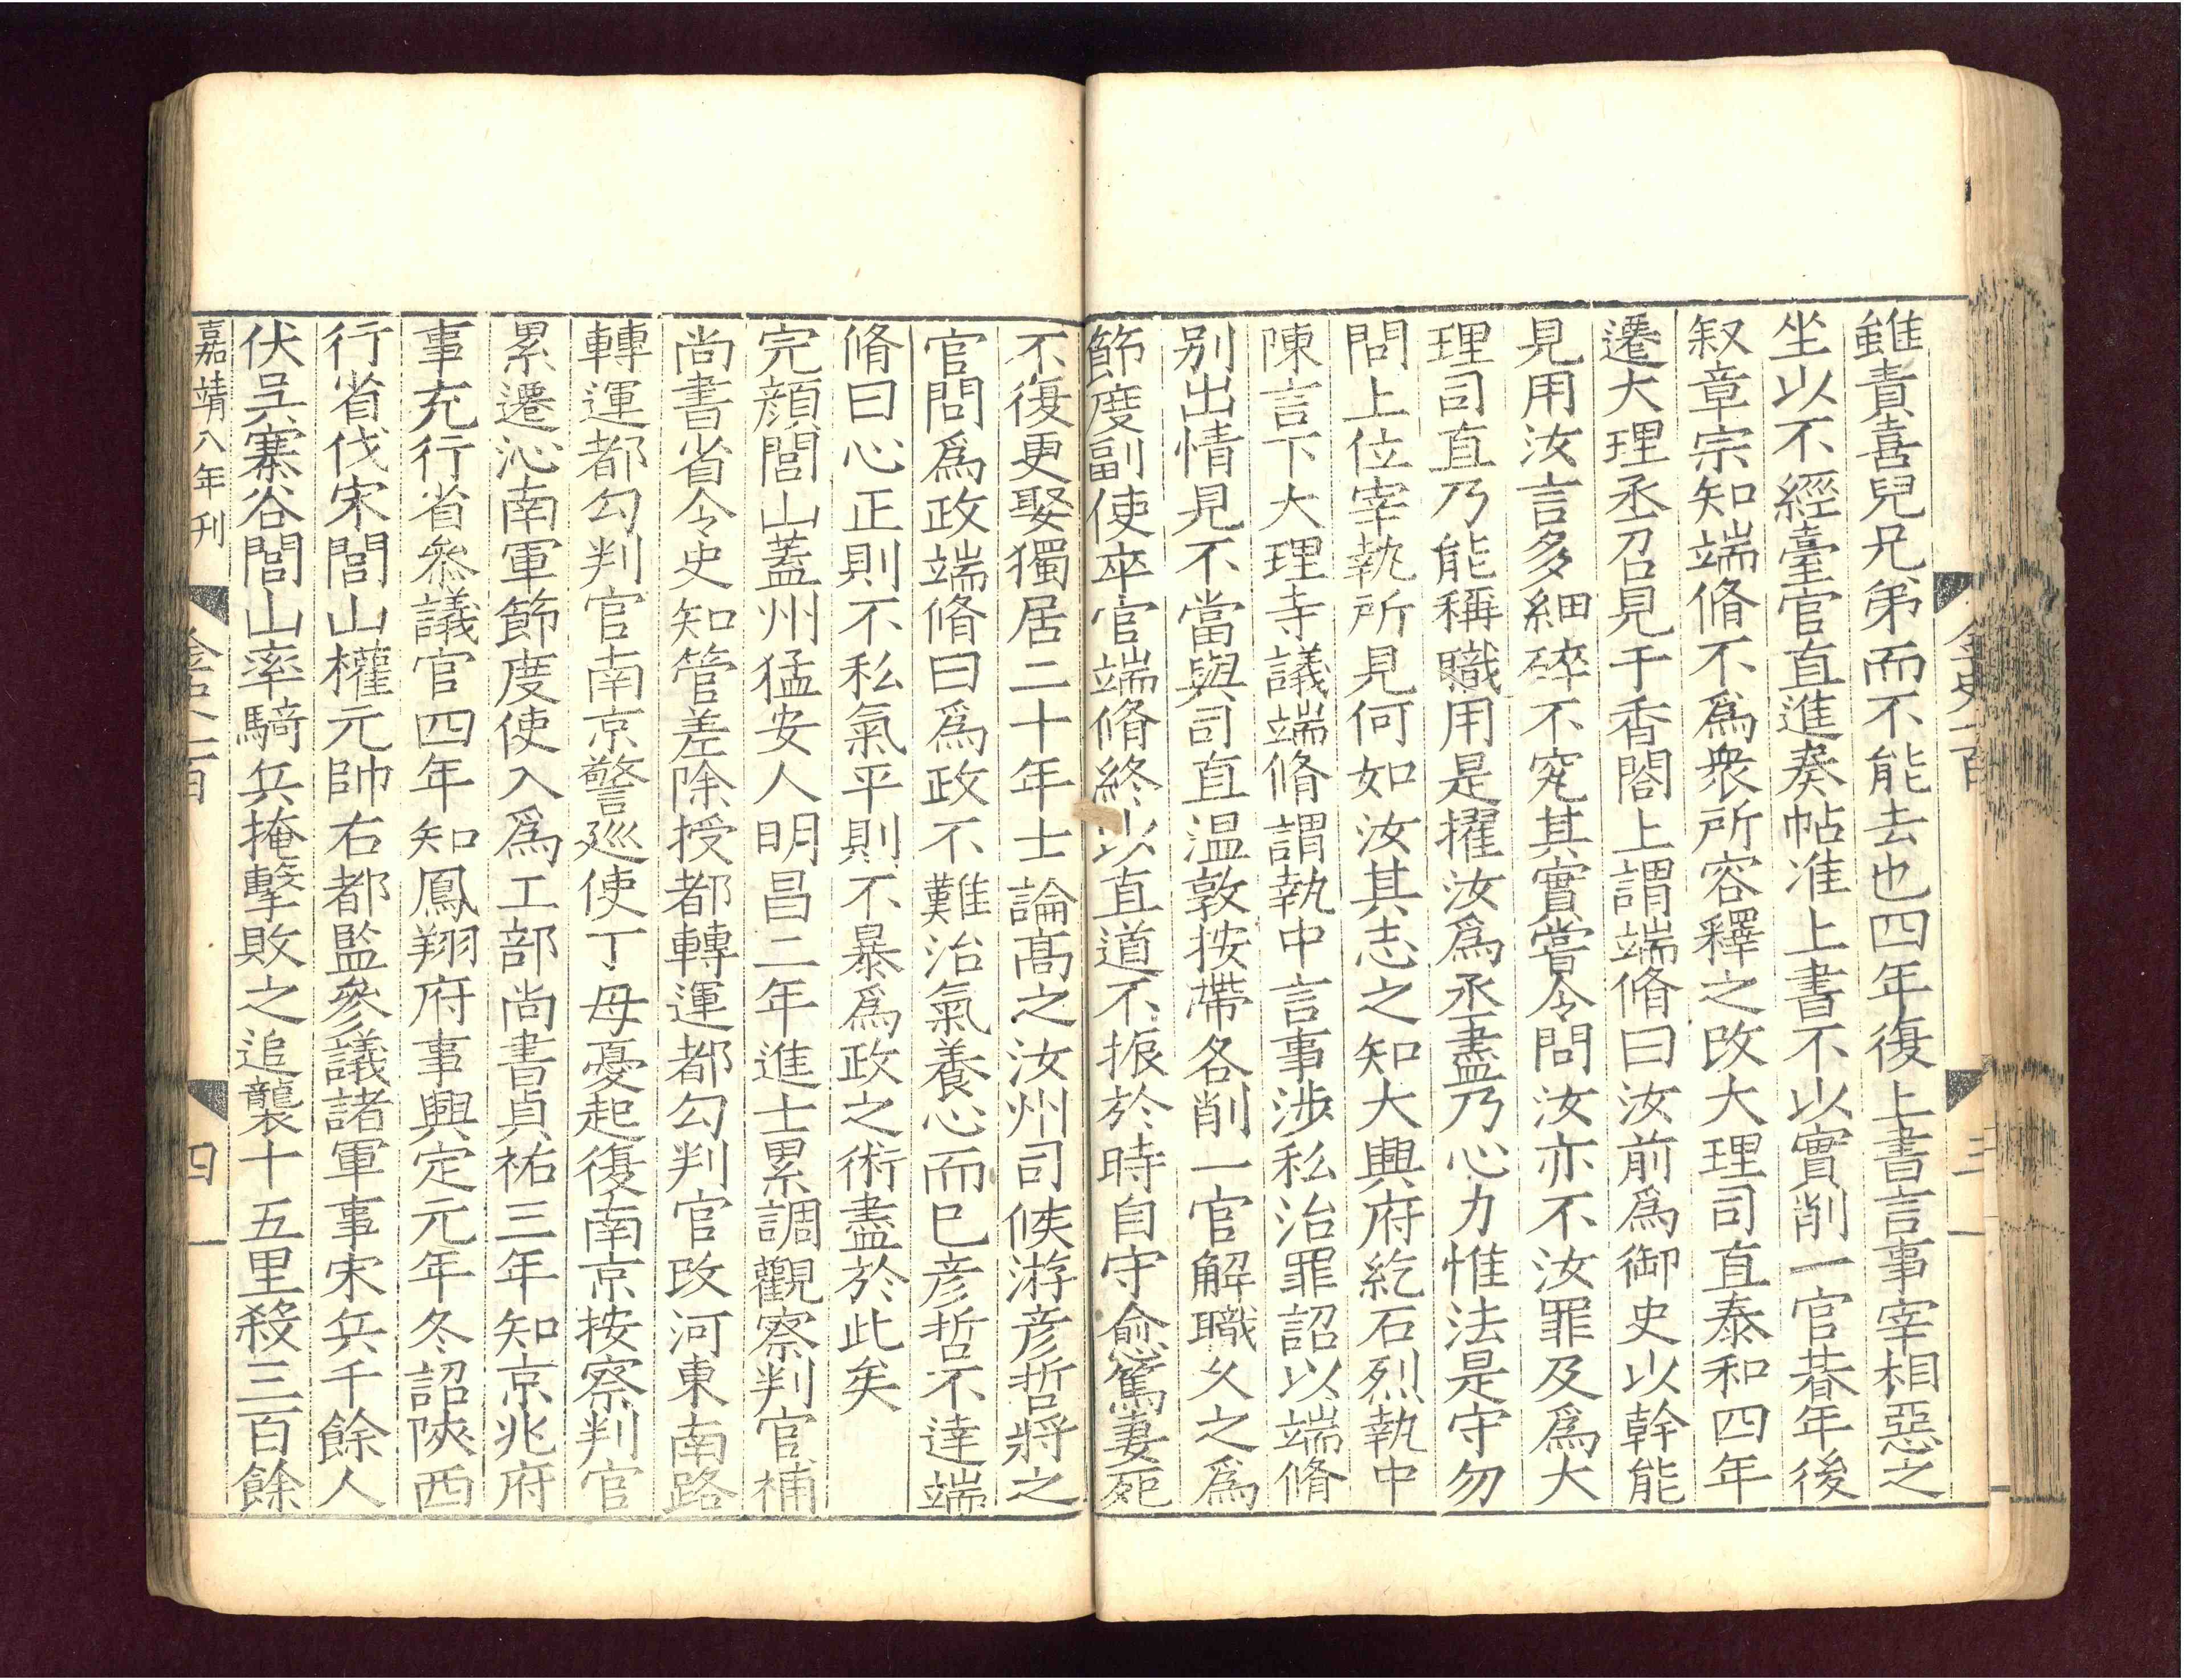 金史一百
三
雖責喜兒兄弟而不能去也四年復上書言事宰相惡之
坐以不經臺官直進奏帖准上書不以實削一官朞年後
叙章宗知端脩不爲衆所容釋之改大理司直泰和四年
遷大理丞召見于香閤上謂端脩曰汝前爲御史以幹能
見用汝言多細碎不究其實嘗令問汝亦不汝罪及爲大
理司直乃能稱職用是擢汝爲丞盡乃心力惟法是守勿
問上位宰執所見何如汝其志之知大興府紇石烈執中
陳言下大理寺議端脩謂執中言事涉私治罪詔以端脩
别出情見不當與司直温敦按帶各削一官解職乆之爲
節度副使卒官端脩終以直道不振於時自守愈篤妻死
不復更娶獨居二十年士論髙之汝州司候游彦哲將之
官問爲政端脩曰爲政不難治氣養心而已彦哲不達端
脩曰心正則不私氣平則不暴爲政之術盡於此矣
完顔閭山蓋州猛安人明昌二年進士累調觀察判官補
尚書省令史知管差除授都轉運都勾判官改河東南路
轉運都勾判官南京警廵使丁母憂起復南京按察判官
累遷沁南軍節度使入爲工部尚書貞祐三年知京兆府
事充行省叅議官四年知鳳翔府事興定元年冬詔陝西
行省伐宋閭山權元帥右都監參議諸軍事宋兵千餘人
伏吳寨谷閭山率騎兵掩擊敗之追襲十五里殺三百餘
嘉靖八年刊
四